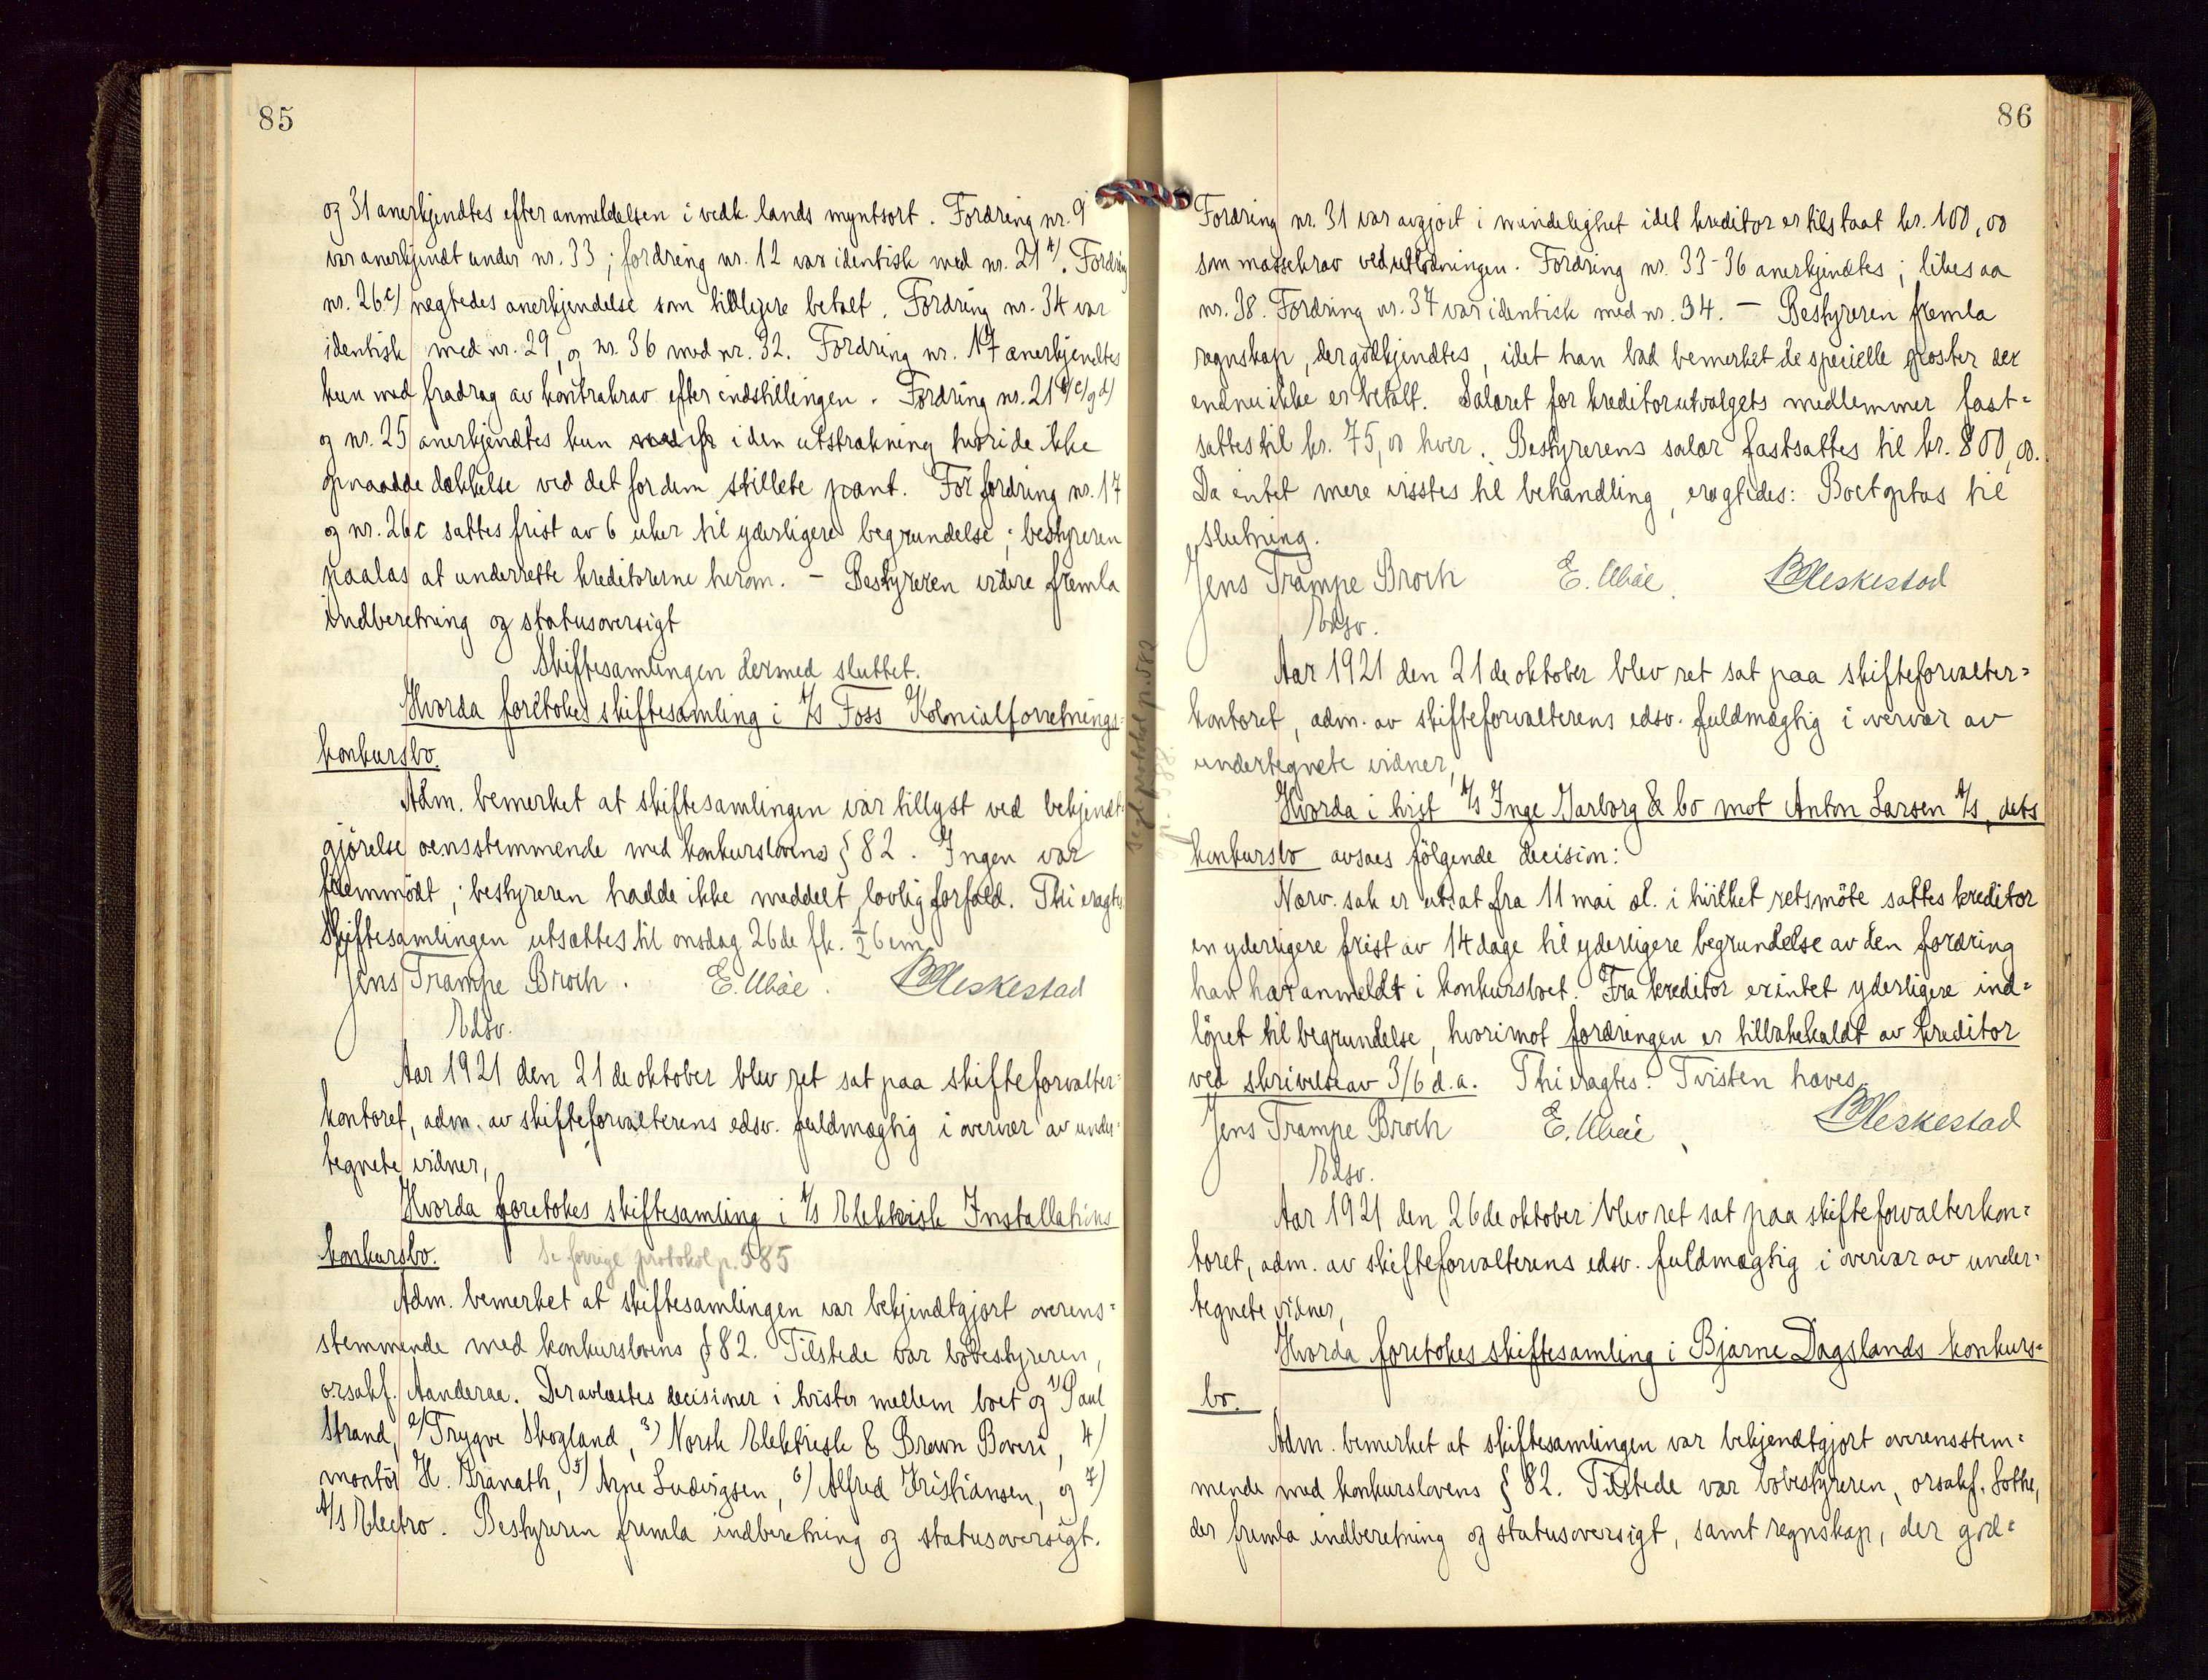 85
og 31 anerkjendtes efter anmeldelsen i vedk. lands myntsort. Fordring nr. 9
var anerkjendt under nr. 33; fordring nr. 12 var identisk med nr. 21 a/. Fordring
nr. 26 c/ nægtedes anerkjendelse som tidligere betalt. Fordring nr. 34 var
identisk med nr. 29, og nr. 36 med nr. 32. Fordring nr. 17 anerkjendtes
kun med fradrag av kontrakrav efter indstillingen. Fordring nr. 21 b/ c/ og d/
og nr. 25 anerkjendtes kun i den utstrækning hvori de ikke
opnaadde dækkelse ved det for dem stillete pant. For fordring nr. 17
og nr. 26c sattes frist av 6 uker til yderligere begrundelse; bestyreren
paalas at underrette kreditorerne herom. - Bestyreren videre fremla
indberetning og statusoversigt
Skiftesamlingen dermed sluttet.
Hvorda foretokes skiftesamling i A/S Foss Kolonialforretnings-
konkursbo.
Adm. bemerket at skiftesamlingen var tillyst ved bekjendt-
gjörelse overensstemmende med konkurslovens § 82. Ingen var
fremmödt; bestyreren hadde ikke meddelt lovlig forfald. Thi eragtes
Skiftesamlingen utsættes til onsdag 26de ds. kl. 1/2 6 em.
Jens Trampe Broch. E. Ubøe. B Heskestad
Edsv.
Aar 1921 den 21 de oktober blev ret sat paa skifteforvalter-
kontoret, adm. av skifteforvalterens edsv. fuldmægtig i overvær av under-
tegnete vidner,
Hvorda foretokes skiftesamling i A/S Elektrisk Installations
konkursbo. Se forrige protokol p. 585
Adm. bemerket at skiftesamlingen var bekjendtgjort overens-
stemmende med konkurslovens § 82. Tilstede var bobestyreren,
o.r.sakf. Aanderaa. Der avlæstes decisioner i tvister mellem boet og 1) Paul
Strand, 2) Trygve Skogland, 3) Norsk Elektrisk & Brown Boveri, 4)
montör H. Granath, 5) Arne Ludvigsen, 6) Alfred Kristiansen, og 7)
A/S Electro. Bestyreren fremla indberetning og statusoversigt.
se gl. protokol p. 582
86
Fordring nr. 31 var avgjort i mindelighet idet kreditor er tilstaat kr. 100,00
som massekrav ved utlodningen. Fordring nr. 33-36 anerkjendtes; likesaa
nr. 38. Fordring nr. 37 var identisk med nr. 34. - Bestyreren fremla
regnskap, der godkjendtes, idet han bad bemerket de specielle poster der
endnu ikke er betalt. Salæret for kreditorutvalgets medlemmer fast-
sattes til kr. 75,00 hver. Bestyrerens salær fastsattes til kr. 800,00.
Da intet mere vistes til behandling, eragtedes: Boet optas til
slutning.
Jens Trampe Broch E. Ubøe. B Heskestad
Edsv.
Aar 1921 den 21 de oktober blev ret sat paa skifteforvalter-
kontoret, adm. av skifteforvalterens edsv. fuldmægtig i overvær av
undertegnete vidner,
Hvorda i tvist A/S Inge Garborg & Co mot Anton Larsen A/S, dets
konkursbo avsaes fölgende decision:
Nærv. sak er utsat fra 11 mai sl. i hvilket retsmöte sattes kreditor
en yderligere frist av 14 dage til yderligere begrundelse av den fordring
han har anmeldt i konkursboet. Fra kreditor er intet yderligere ind-
löpet til begrundelse, hvorimot fordringen er tilbakekaldt av kreditor
ved skrivelse av 3/6 d.a. Thi eragtes: Tvisten hæves.
Jens Trampe Broch E. Ubøe B Heskestad
Edsv.
Aar 1921 den 26 de oktober blev ret sat paa skifteforvalterkon-
toret, adm. av skifteforvalterens edsv. fuldmægtig i overvær av under-
tegnete vidner,
Hvorda foretokes skiftesamling i Bjarne Dagslands konkurs-
bo.
Adm. bemerket at skiftesamlingen var bekjendtgjort overensstem-
mende med konkurslovens § 82. Tilstede var bobestyreren, o.r.sakf. Lothe,
der fremla indberetning og statusoversigt, samt regnskap, der god-